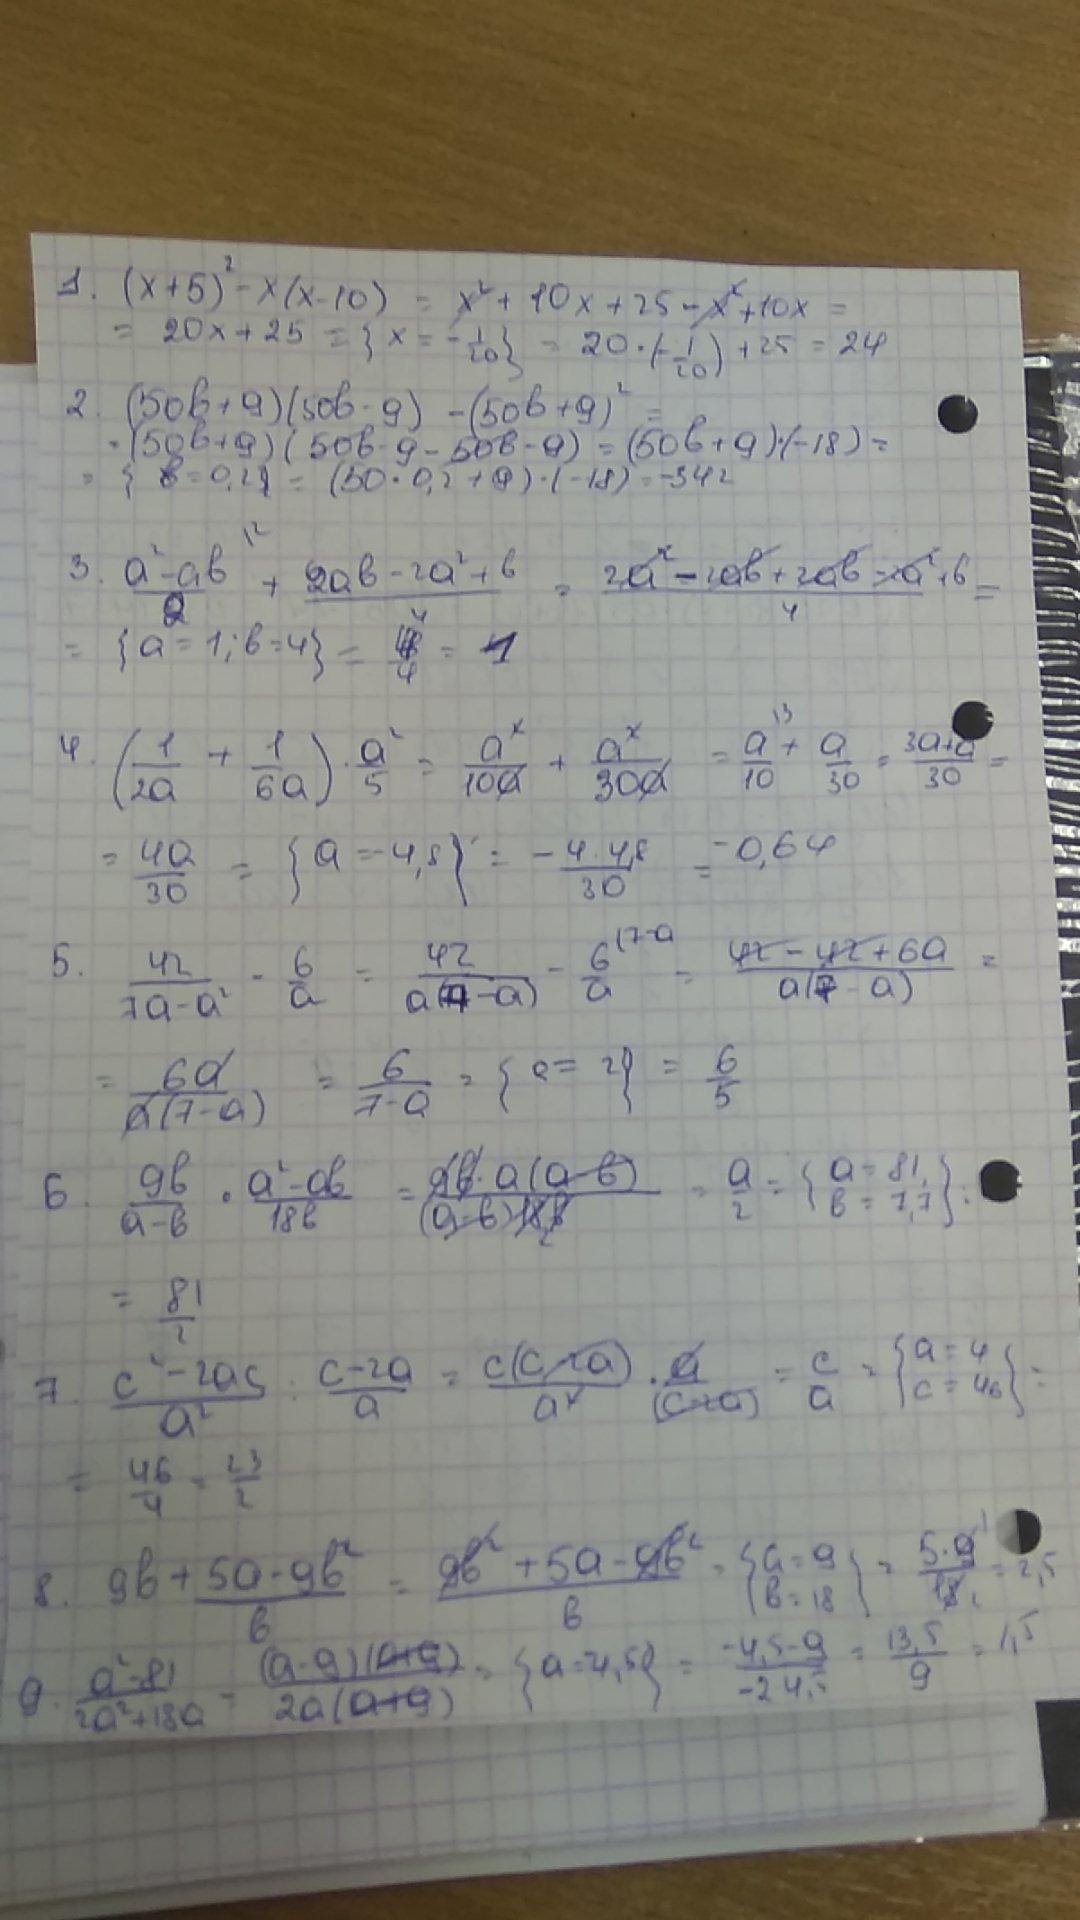 1. (x+5)² - x(x-10) = x² + 10x + 25 - x² + 10x =
= 20x + 25 = {x = -1/20} = 20·(-1/20) + 25 = 24
2. (50b+9)(50b-9) - (50b+9)² =
= (50b+9)(50b-9-50b-9) = (50b+9)·(-18) =
= {b=0,2} = (50·0,2+9)·(-18) = -342
3. (a²-ab)/2 + (2ab-2a²+b)/4 = (2a²-2ab+2ab-2a²+b)/4 =
= {a=1; b=4} = 4/4 = 1
4. (1/2a + 1/6a)·a²/5 = a²/10a + a²/30a = a/10 + a/30 = (3a+a)/30 =
= 4a/30 = {a=-4,8} = -4·4,8/30 = -0,64
5. 42/(7a-a²) - 6/a = 42/(a(7-a)) - 6/a = (42-42+6a)/(a(7-a)) =
= 6a/(a(7-a)) = 6/(7-a) = {a=2} = 6/5
6. 9b/(a-b) · (a²-ab)/18b = 9b·a(a-b)/((a-b)18b) = a/2 = {a=81, b=7,7} =
= 81/2
7. (c²-2ac)/a² : (c-2a)/a = c(c-2a)/a² · a/(c-2a) = c/a = {a=4 c=46} =
= 46/4 = 23/2
8. 9b + (5a-9b²)/b = (9b²+5a-9b²)/b = {a=9 b=18} = 5·9/18 = 2,5
9. (a²-81)/(2a²+18a) = (a-9)(a+9)/(2a(a+9)) = {a=-4,5} = (-4,5-9)/(-2·4,5) = 13,5/9 = 1,5